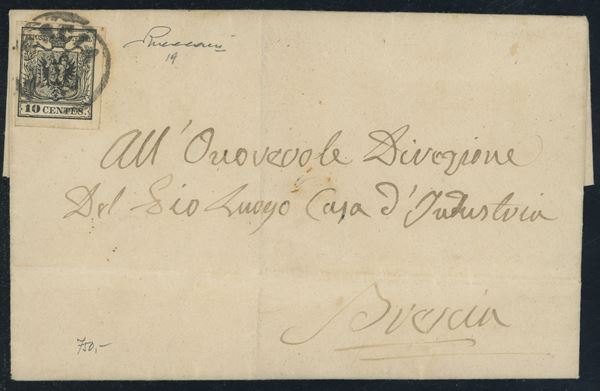 10 CENTES.
19
All' Onorevole Direzione
Del Pio Luogo Casa d'Industria
Brescia
750,-